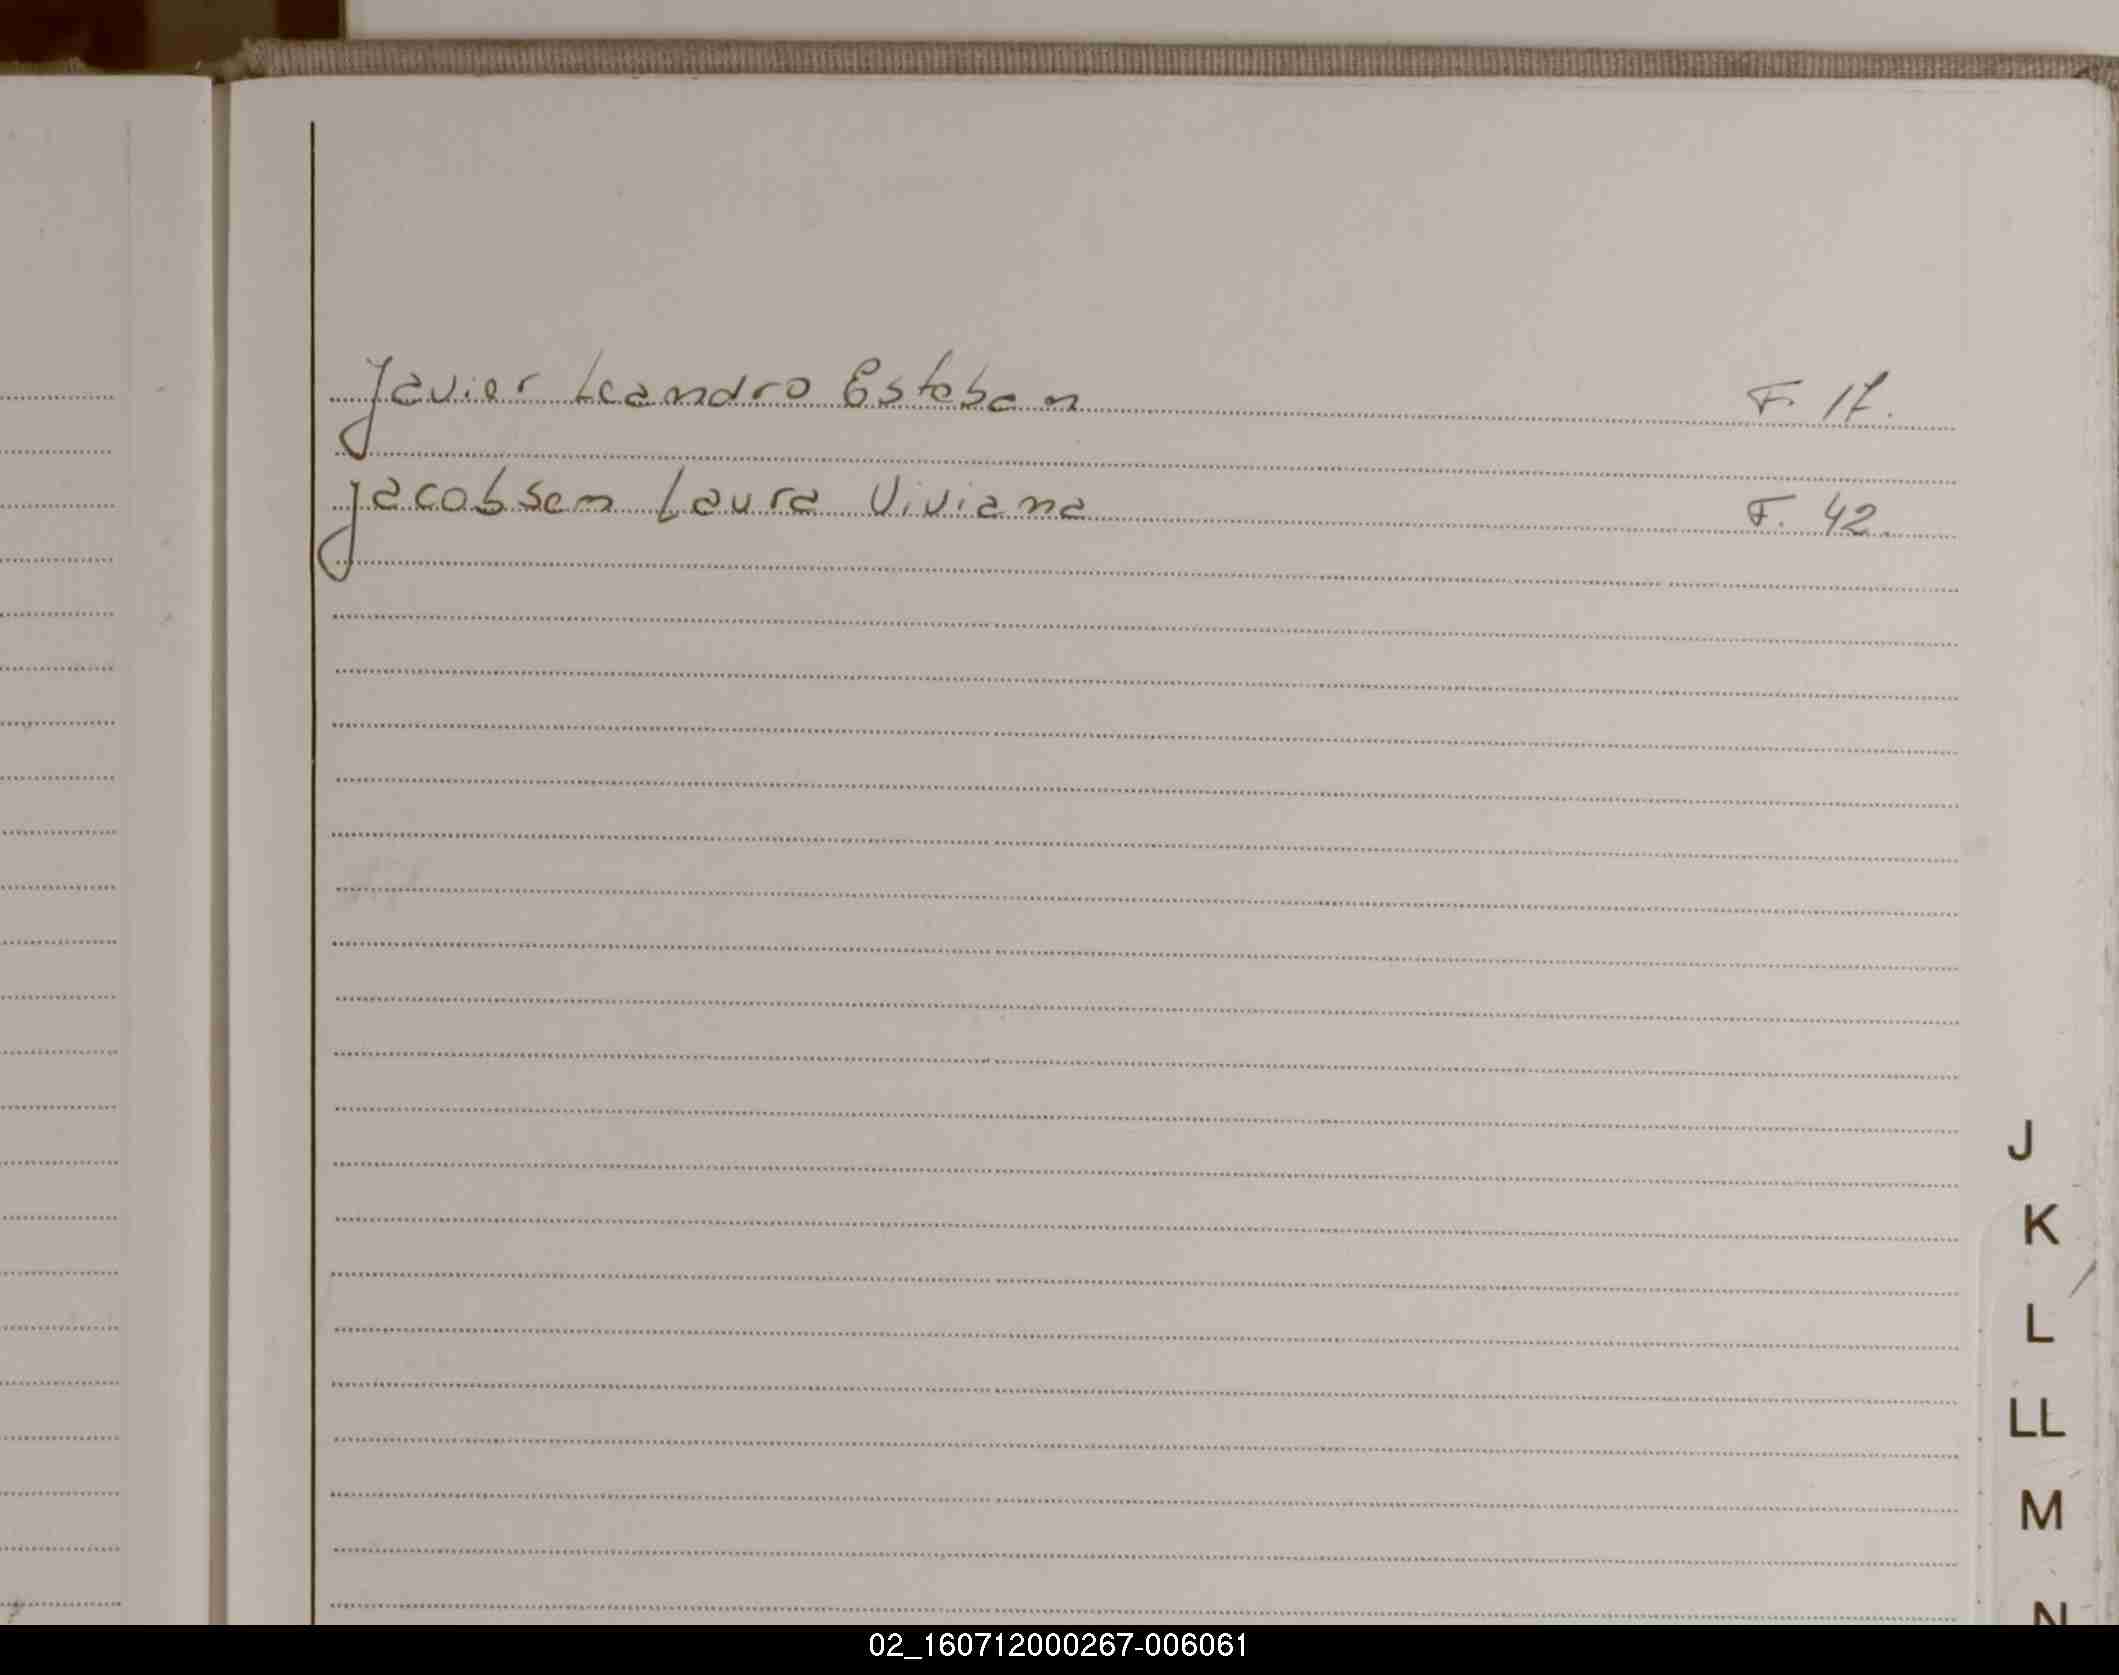 Javier Leandro Esteban F. 17.
Jacobsen Laura Viviana F. 42.
J
K
L
LL
M
N
02_160712000267-006061